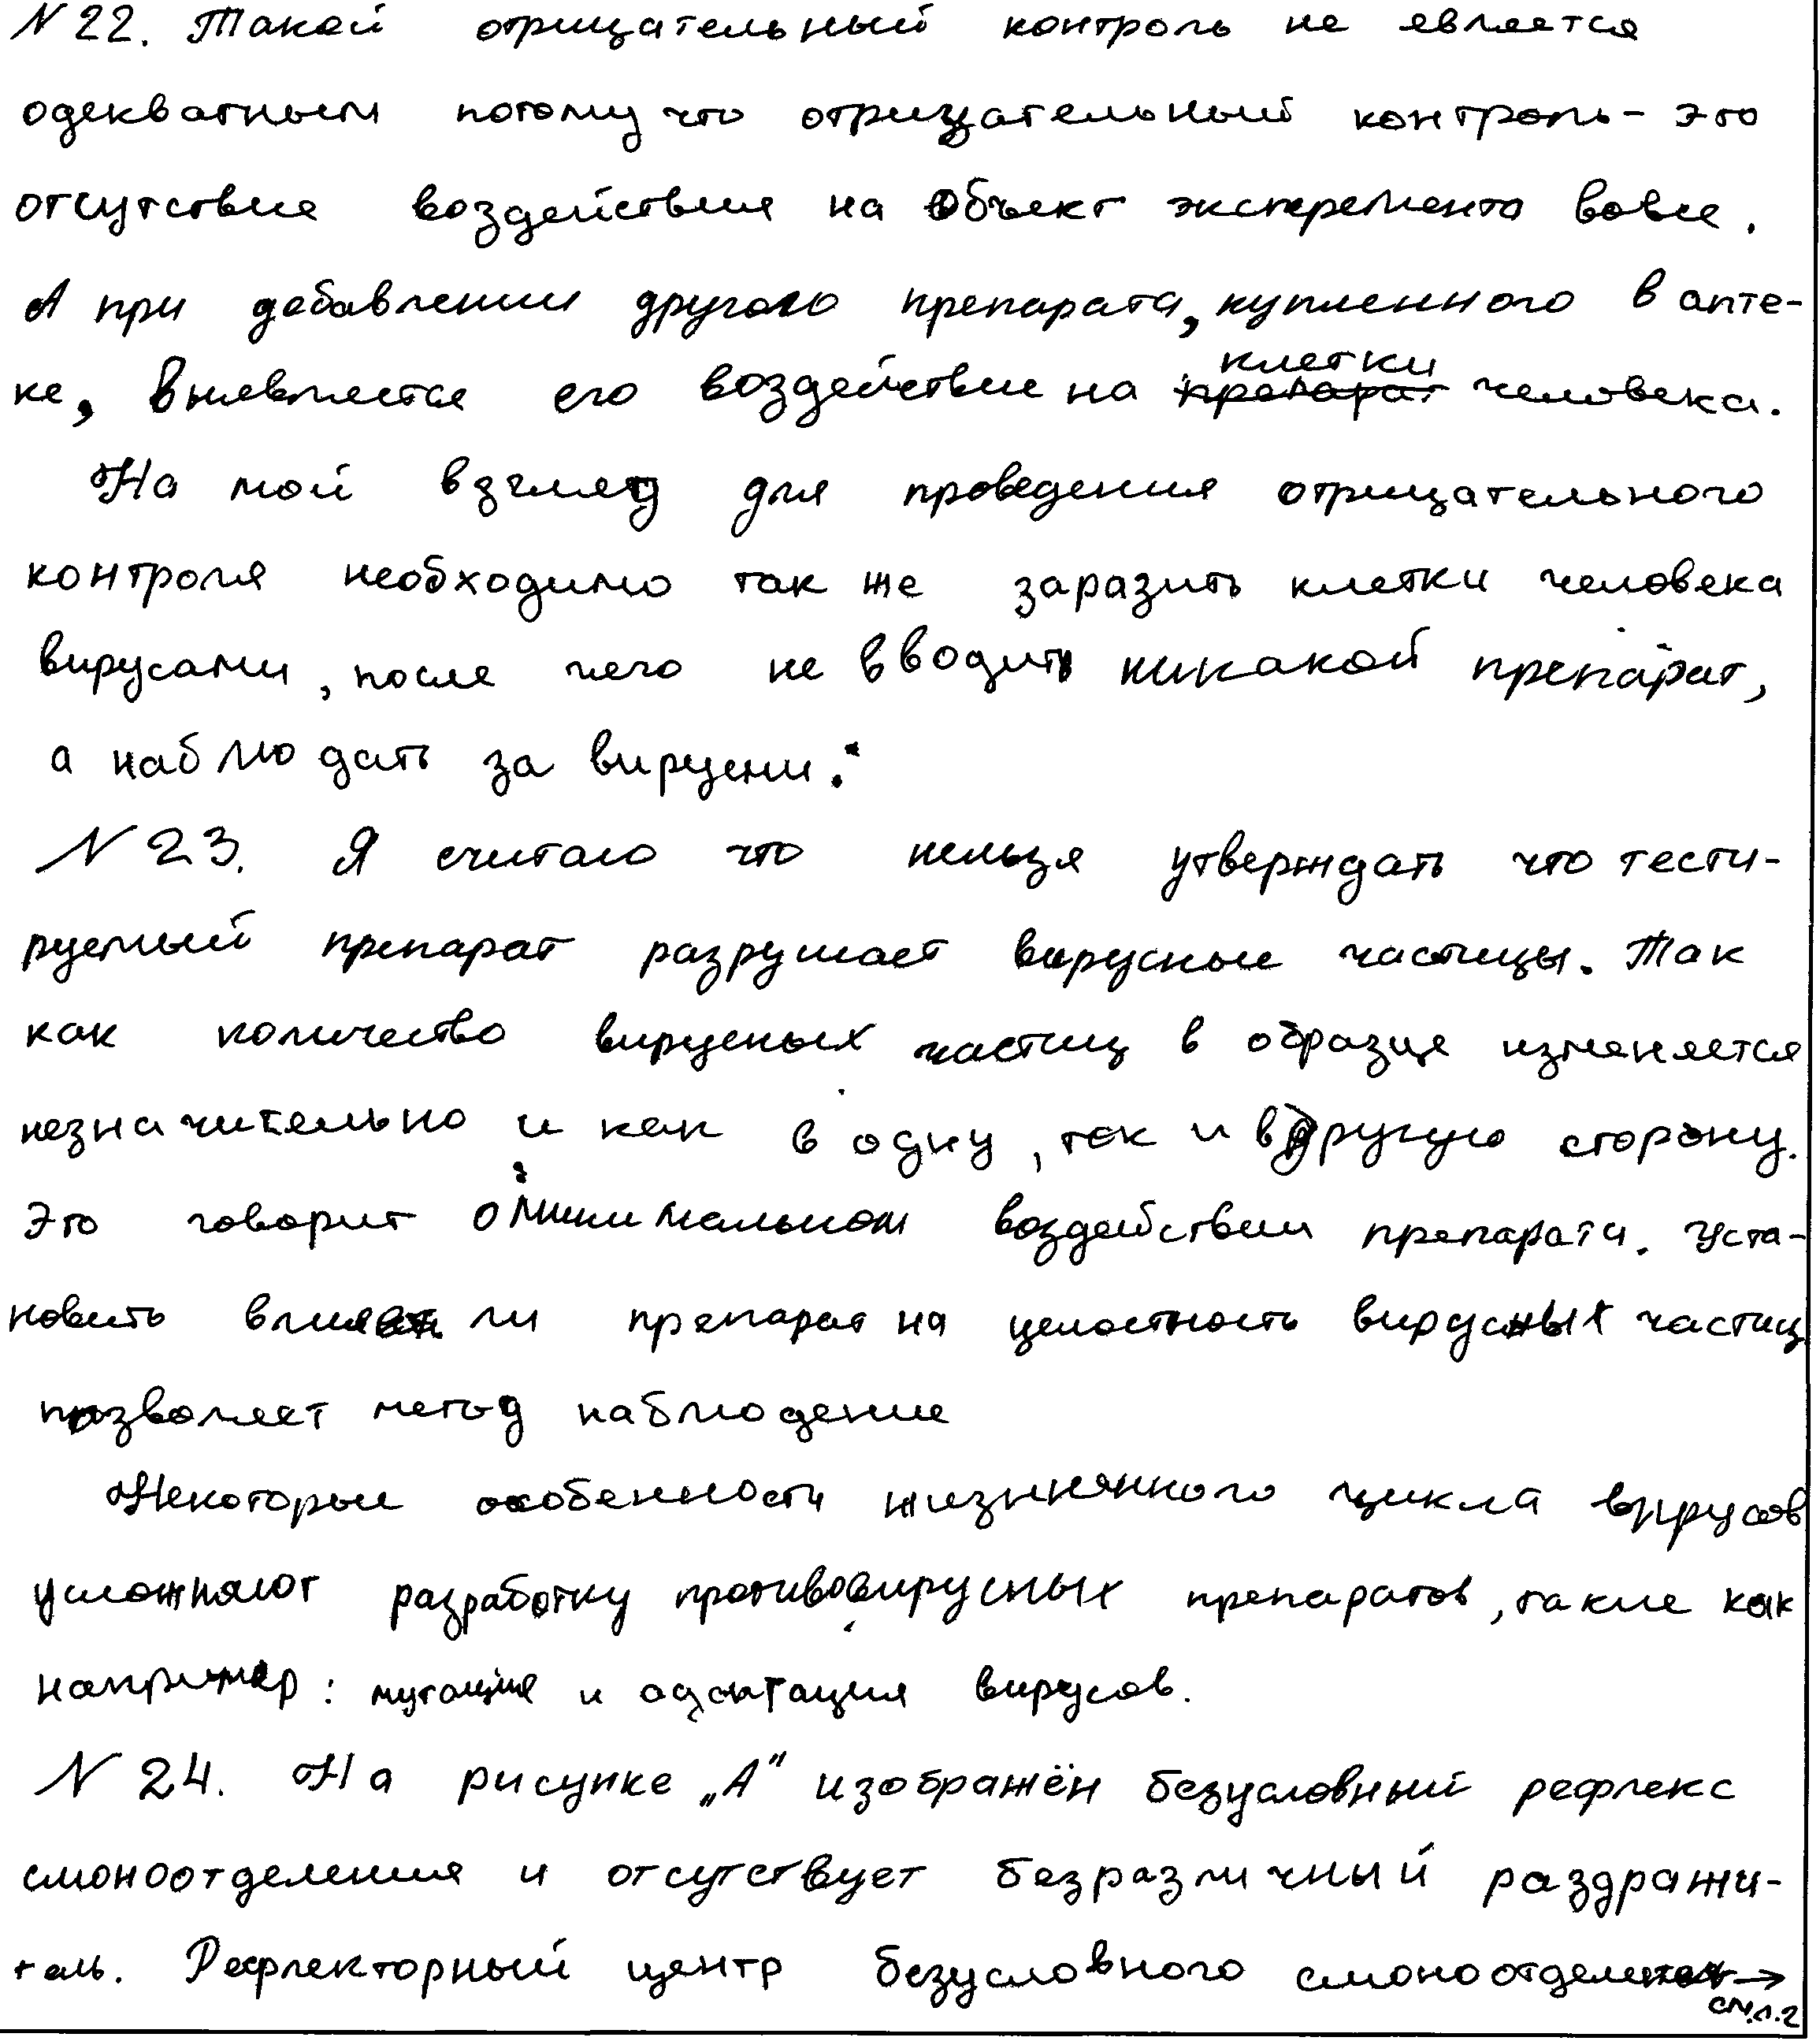 N 22. Такой отрицательный контроль не является
одекватным потому что отрицательный контроль - это
отсутствие воздействия на объект эксперемента вовсе.
А при добавлении другого препарата, купленного в апте-
ке, выявляется его воздействие на клетки человека.
На мой взгляд для проведения отрицательного
контроля необходимо так же заразить клетки человека
вирусами, после чего не вводить никакой препарат,
а наблюдать за вирусни.
N 23. Я считаю что нельзя утверждать что тести-
руемый препарат разрушает вирусные частицы. Так
как количество вирусных частиц в образце изменяется
незначительно и как в одну, так и в другую сторону.
Это говорит о минимальном воздействии препарата. Уста-
новить влияет ли препарат на целостность вирусных частиц
позволяет метод наблюдение
Некоторые особенности жизненного цикла вирусов
усложняют разработку противовирусных препаратов, такие как
например: мутация и адаптация вирусов.
N 24. На рисунке „А" изображён безусловный рефлекс
слюноотделения и отсутствует безразличный раздражи-
тель. Рефлекторный центр безусловного слюноотделения →
см.л.2